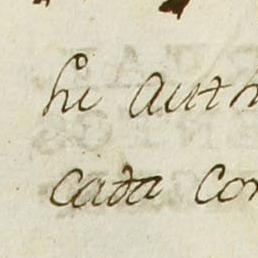 hi auth
cada con